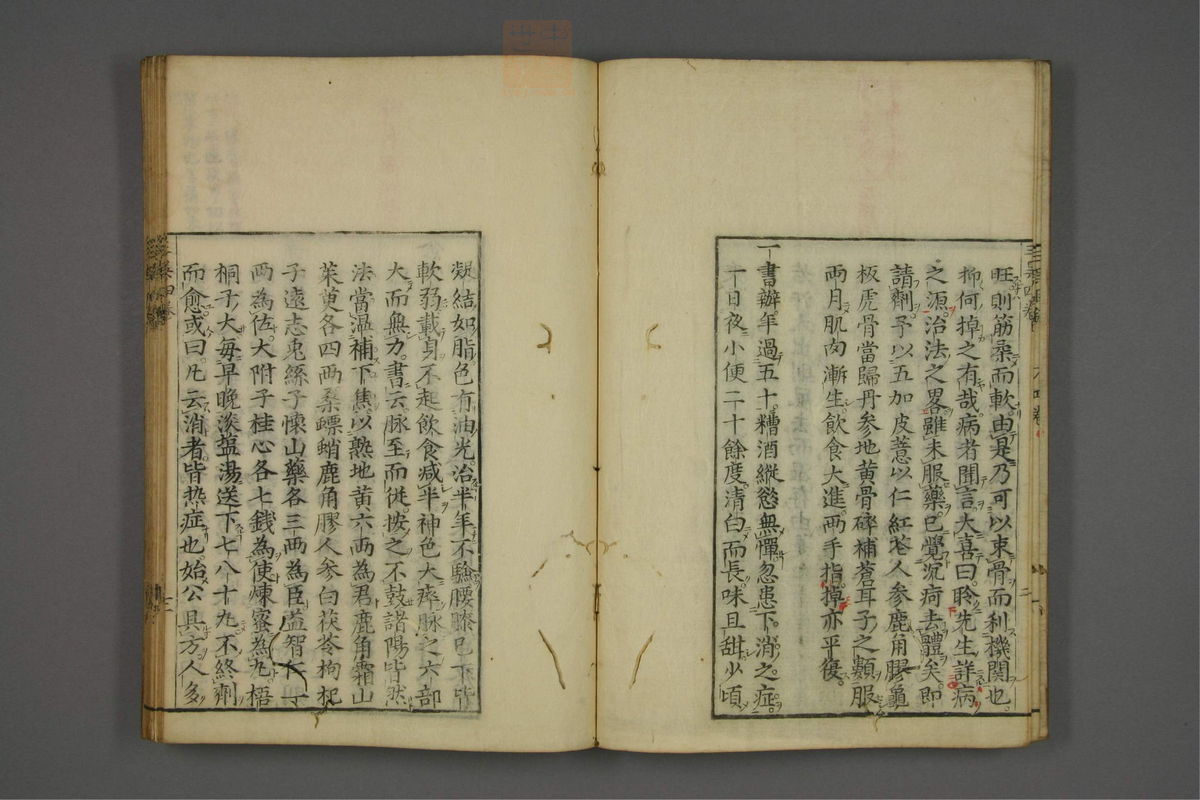 旺則筋柔而軟由是乃可以束骨而利機關也
抑何掉之有哉病者聞言大喜曰聆先生詳病
之源治法之畧雖未服藥已覺沉痾去體矣即
請劑予以五加皮薏以仁紅花人参鹿角膠龜
板虎骨當歸丹参地黄骨碎補蒼耳子之類服
両月肌肉漸生飲食大進両手指掉亦平復
一書辦年過五十糟酒縱慾無憚忽患下消之症
一日夜小便二十餘度清白而長味且甜少頃
凝結如脂色有油光治半年不驗腰膝已下皆
軟弱載身不起飲食减半神色大瘁脉之六部
大而無力書云脉至而従按之不鼓諸陽皆然
法當温補下焦以熟地黄六両為君鹿角霜山
茱萸各四両桑螵蛸鹿角膠人参白茯苓枸杞
子遠志兎絲子懷山藥各三両為臣益智仁
両為佐大附子桂心各七錢為使煉蜜為丸梧
桐子大毎早晩淡盐湯送下七八十丸不終劑
而愈或曰凡云消者皆热症也始公具方人多